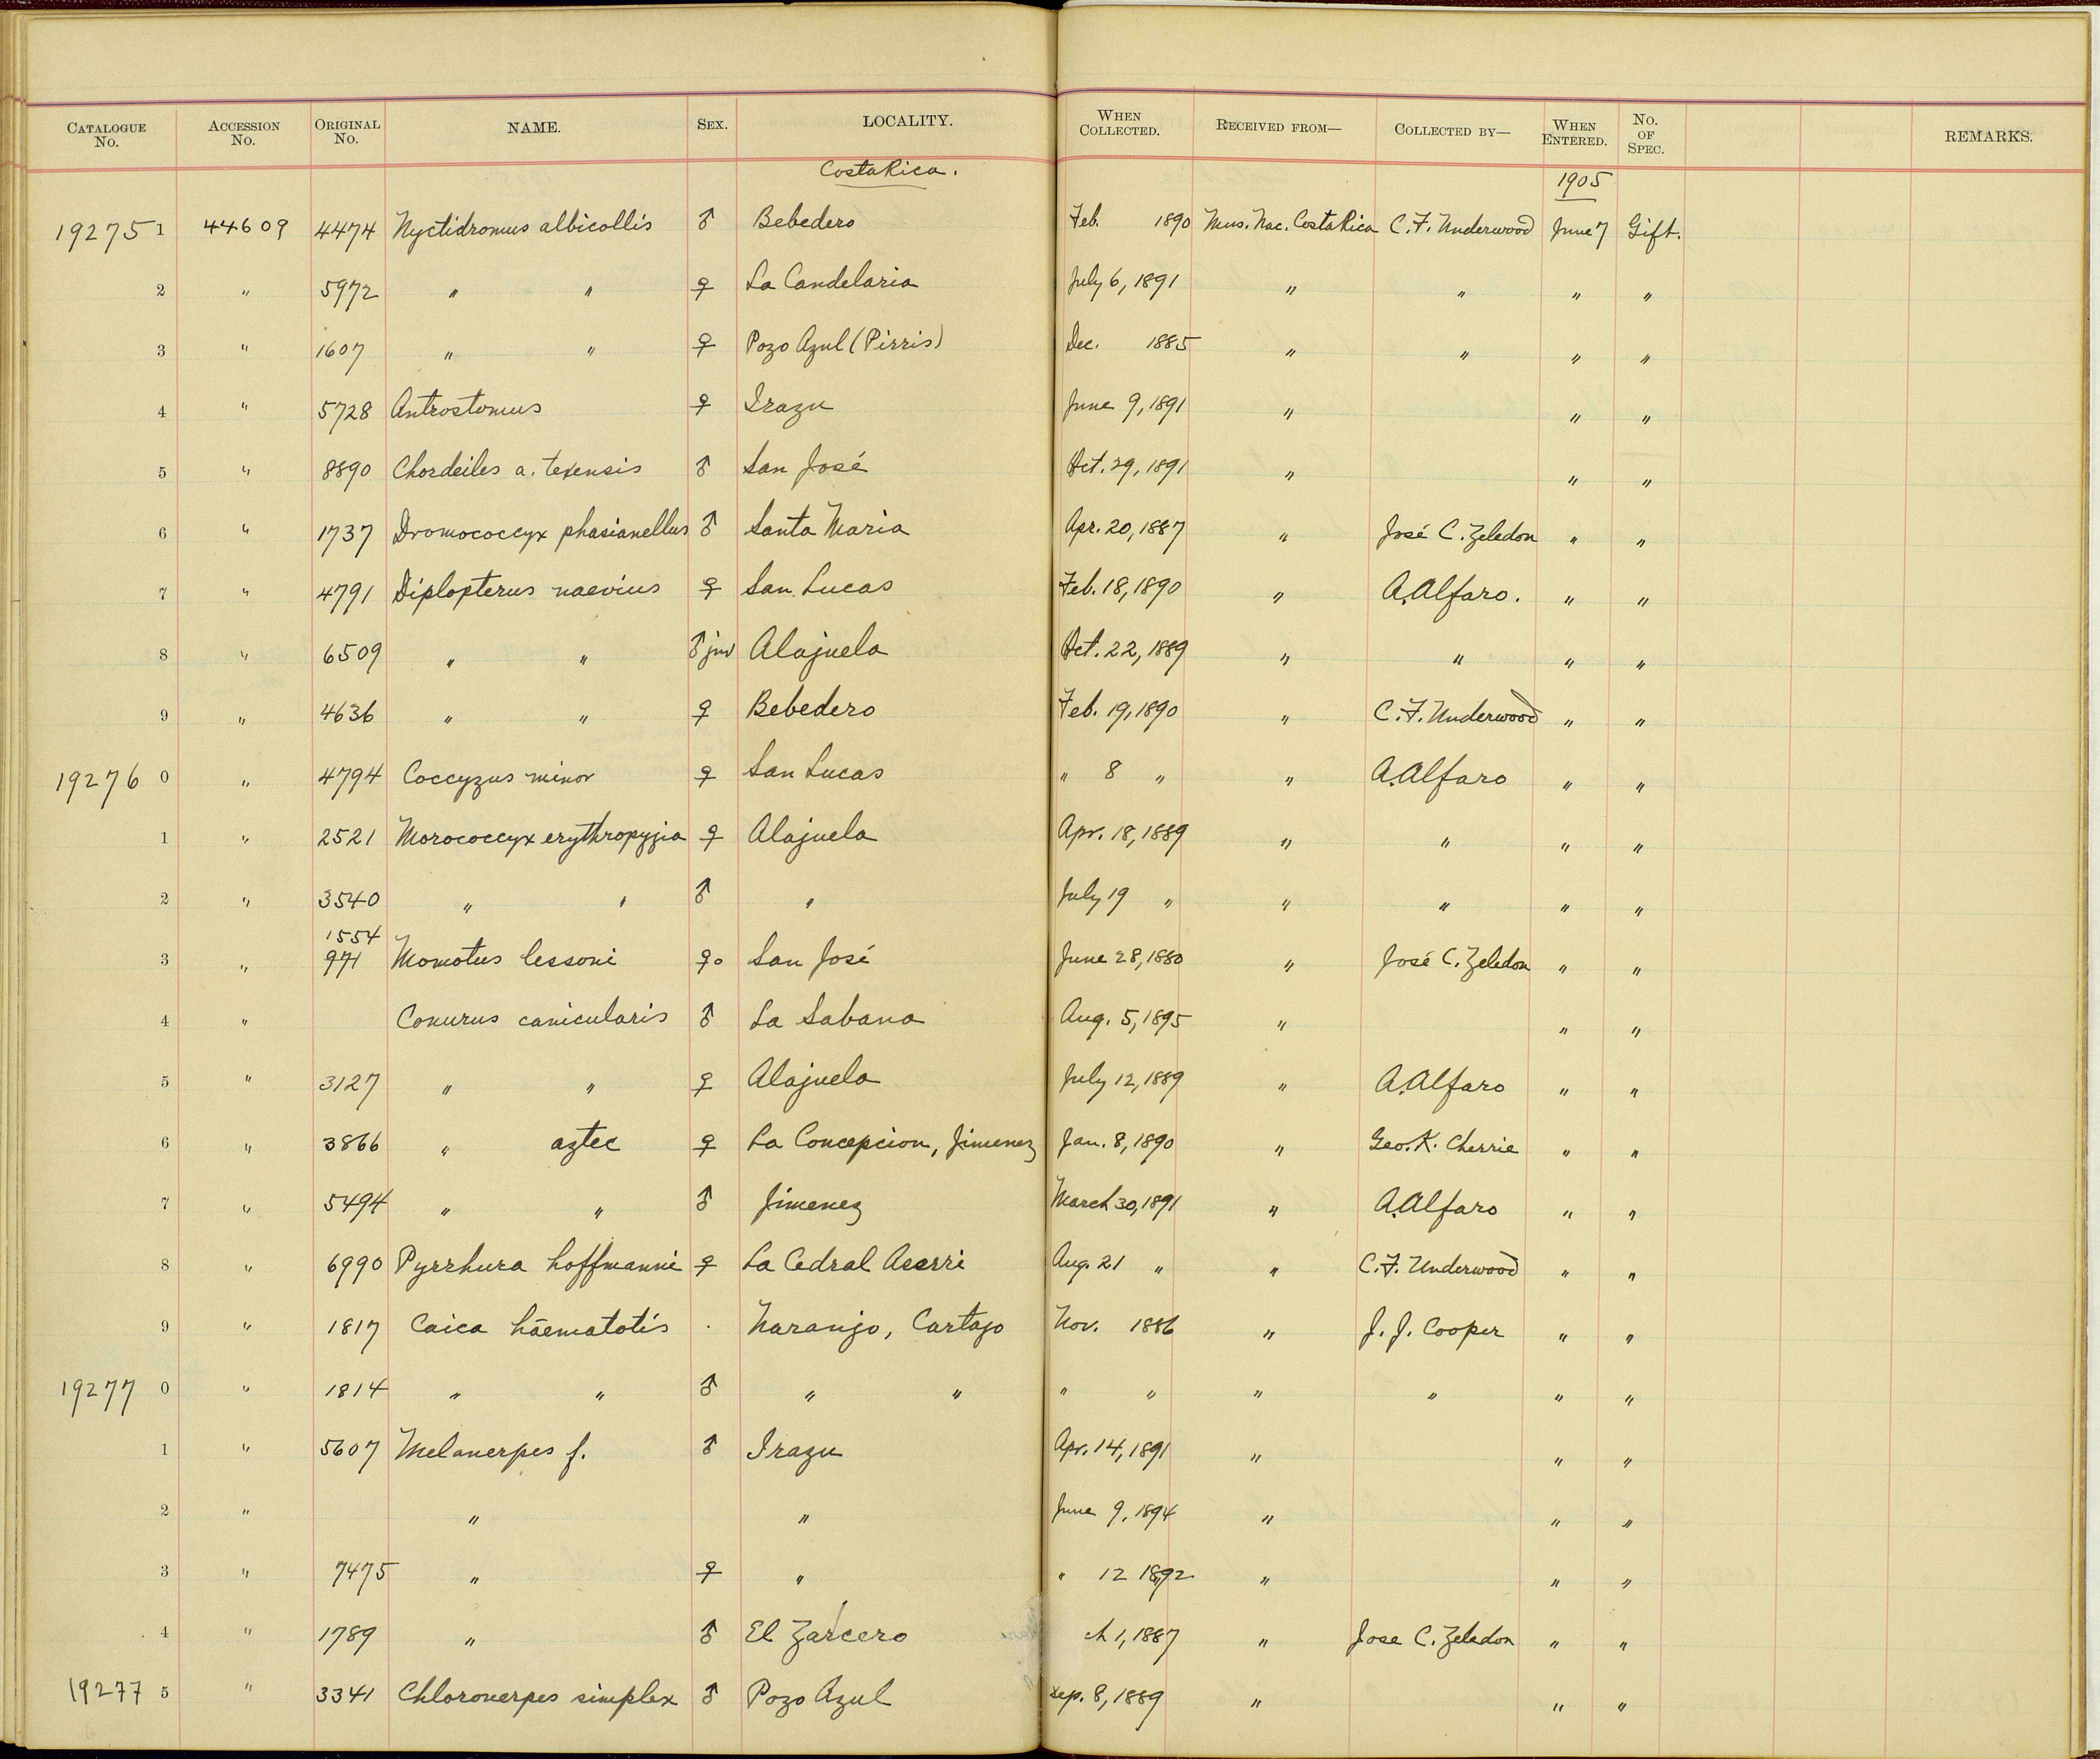 CATALOGUE No. ACCESSION No. ORIGINAL No. NAME. SEX. LOCALITY. WHEN COLLECTED. RECEIVED FROM— COLLECTED BY— WHEN ENTERED. No. OF SPEC. REMARKS.
Costa Rica. 1905
19275 1 44609 4474 Nyctidromus albicollis ♂ Bebedero Feb. 1890 Mus. Nac. Costa Rica C. F. Underwood June 7 Gift.
2 " 5972 " " ♀ La Candelaria July 6, 1891 " " " "
3 " 1607 " " ♀ Pozo Azul (Pirris) Dec. 1885 " " " "
4 " 5728 Antrostomus ♀ Irazu June 9, 1891 " " "
5 " 8890 Chordeiles a. texensis ♂ San José Oct. 29, 1891 " " "
6 " 1737 Dromococcyx phasianellus ♂ Santa Maria Apr. 20, 1887 " José C. Zeledon " "
7 " 4791 Diplopterus naevius ♀ San Lucas Feb. 18, 1890 " A. Alfaro. " "
8 " 6509 " " ♂ juv Alajuela Oct. 22, 1889 " " " "
9 " 4636 " " ♀ Bebedero Feb. 19, 1890 " C. F. Underwood " "
19276 0 " 4794 Coccyzus minor ♀ San Lucas " 8 " " A. Alfaro " "
1 " 2521 Morococcyx erythropygia ♀ Alajuela Apr. 18, 1889 " " " "
2 " 3540 " " ♂ " July 19 " " " " "
1554
3 " 971 Momotus lessoni ♀. San José June 28, 1880 " José C. Zeledon " "
4 " Conurus canicularis ♂ La Sabana Aug. 5, 1895 " " "
5 " 3127 " " ♀ Alajuela July 12, 1889 " A. Alfaro " "
6 " 3866 " aztec ♀ La Concepcion, Jimenez Jan. 8, 1890 " Geo. K. Cherrie " "
7 " 5494 " " ♂ Jimenez March 30, 1891 " A. Alfaro " "
8 " 6990 Pyrrhura hoffmanni ♀ La Cedral Aserri Aug. 21 " " C. F. Underwood " "
9 " 1817 Caica haematotis . Naranjo, Cartago Nov. 1886 " J. J. Cooper " "
19277 0 " 1814 " " ♂ " " " " " " " "
1 " 5607 Melanerpes f. ♂ Irazu Apr. 14, 1891 " " "
2 " " " June 9, 1894 " " "
3 " 7475 " ♀ " " 12 1892 " " "
4 " 1789 " ♂ El Zarcero ch 1, 1887 " Jose C. Zeledon " "
19277 5 " 3341 Chloronerpes simplex ♂ Pozo Azul Sep. 8, 1889 " " "